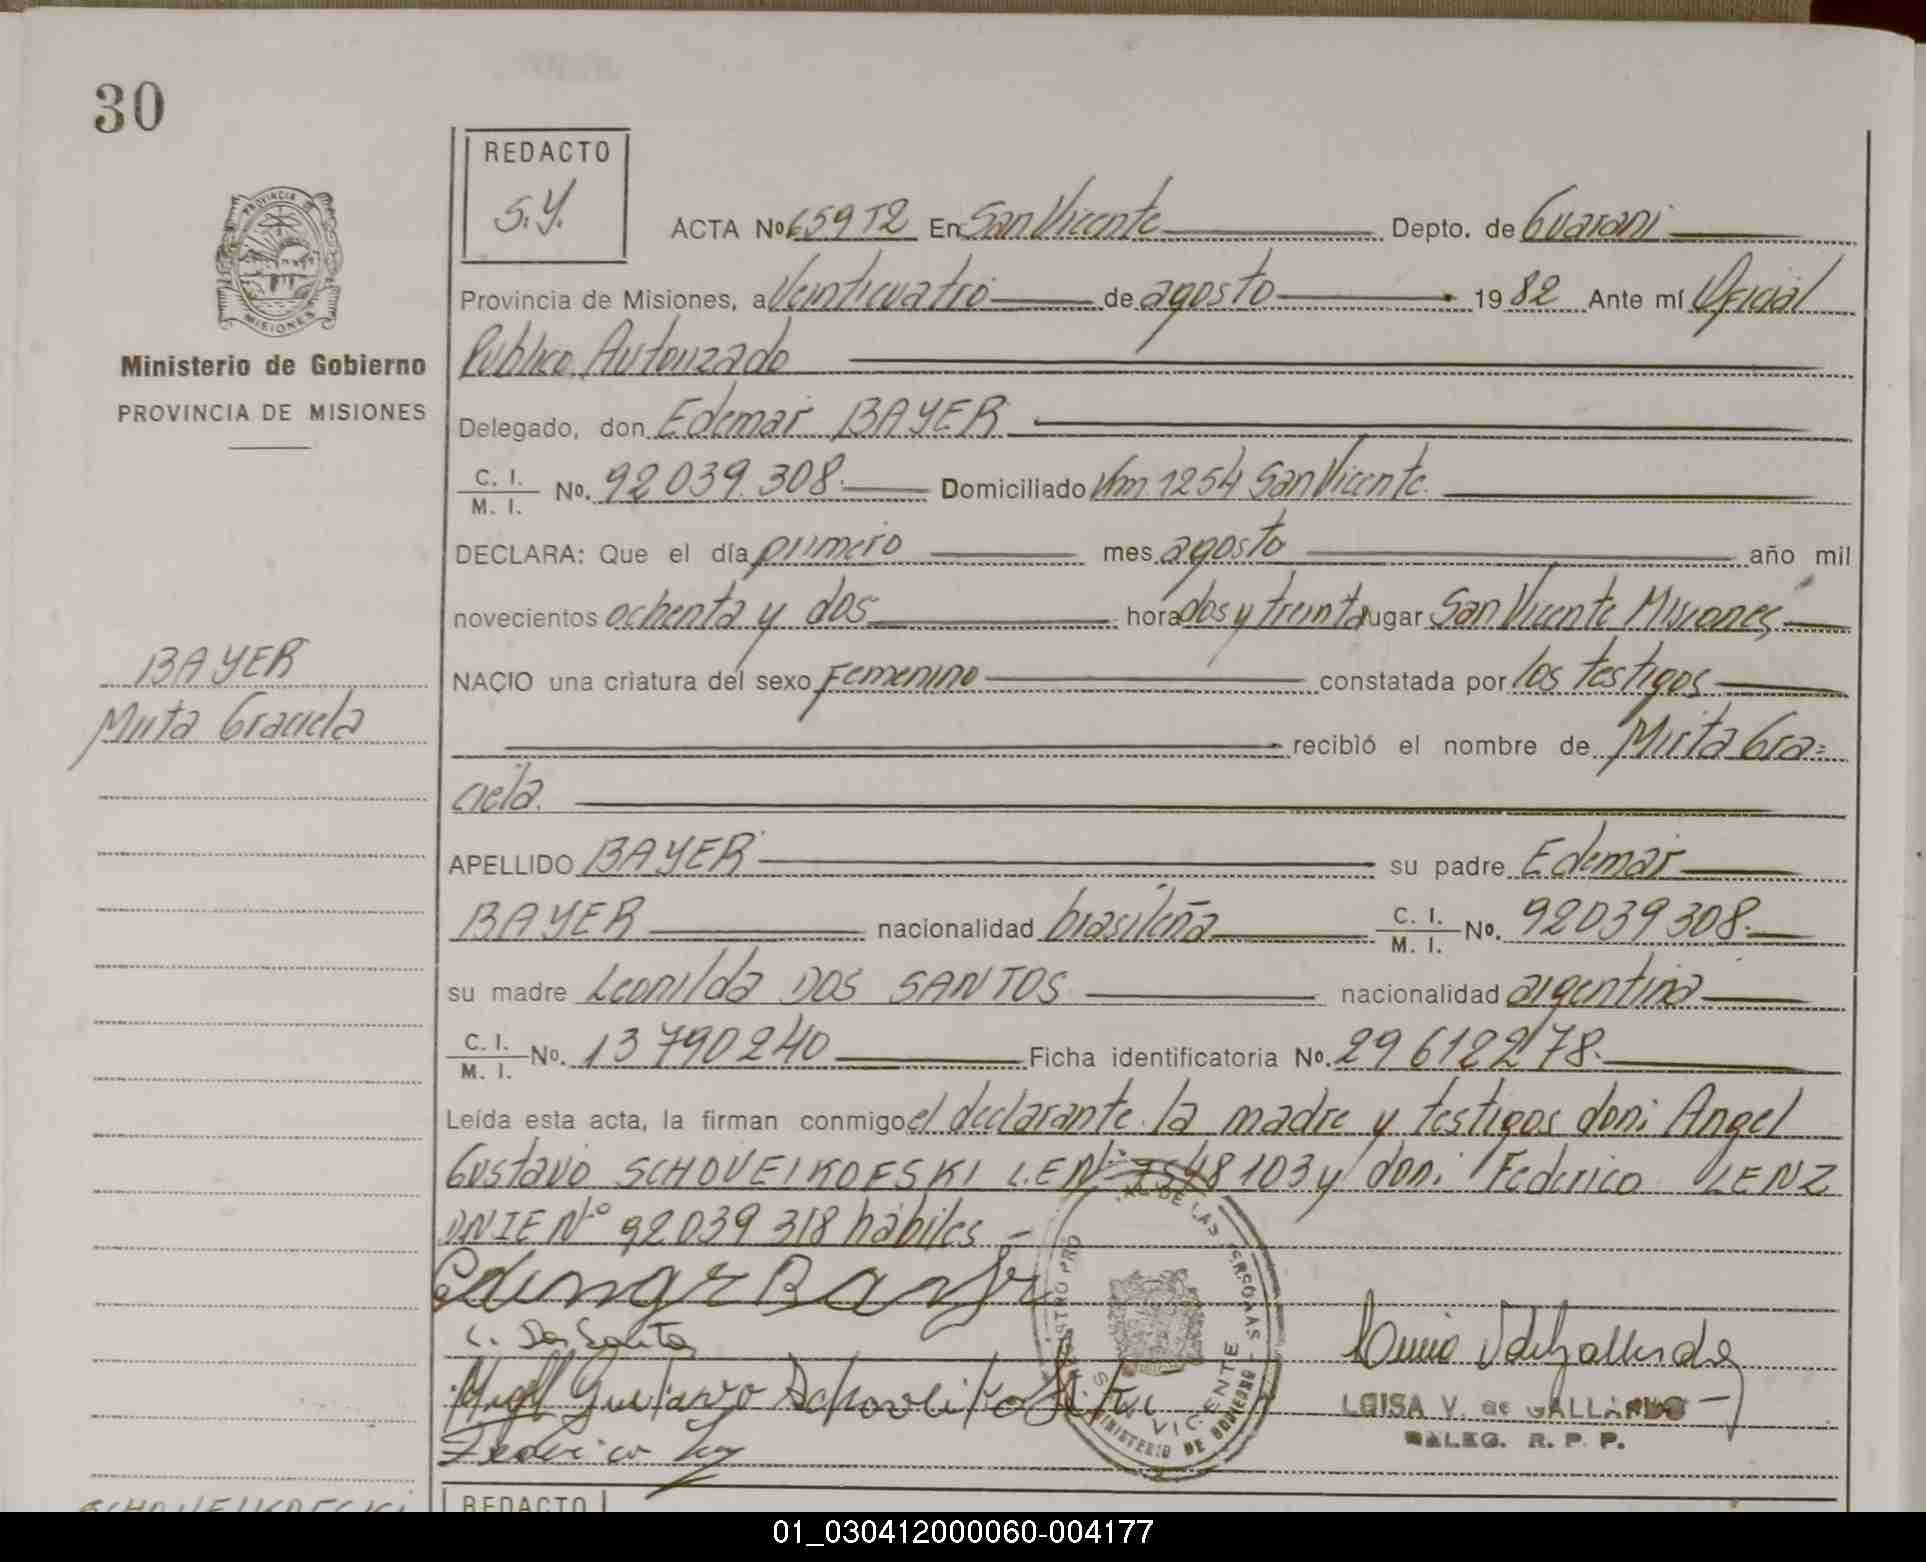 30
REDACTO
S.Y.
PROVINCIA DE
MISIONES
Ministerio de Gobierno
PROVINCIA DE MISIONES
BAYER
Mirta Graciela
ACTA No. 659 T2 En San Vicente Depto. de Guarani
Provincia de Misiones, a Veinticuatro de agosto 1982 Ante mí Oficial
Publico Autorizado
Delegado, don Edemar BAYER
C. I. / M. I. No. 92 039 308. Domiciliado Km 1254 San Vicente.
DECLARA: Que el día primero mes agosto año mil
novecientos ochenta y dos hora dos y treinta lugar San Vicente Misiones
NACIO una criatura del sexo Femenino constatada por los testigos
recibió el nombre de Mirta Gra=
ciela.
APELLIDO BAYER su padre Edemar
BAYER nacionalidad brasileña C. I. / M. I. No. 92039308.
su madre Leonilda DOS SANTOS nacionalidad argentina
C. I. / M. I. No. 13790240 Ficha identificatoria No. 296122/78.
Leída esta acta, la firman conmigo el declarante la madre y testigos don: Angel
Gustavo SCHOVEIKOFSKI L.E Nº 7548103 y don: Federico LENZ
DNIE Nº 92039318 hábiles.-
Edemar Bayer
L. Dos Santos
Angel Gustavo
Federico
DE LAS PERSONAS
SAN VICENTE
MINISTERIO DE GOBIERNO
LUISA V. de GALLARDO
DELEG. R. P. P.
SCHOVEIKOFSKI
REDACTO
01_030412000060-004177